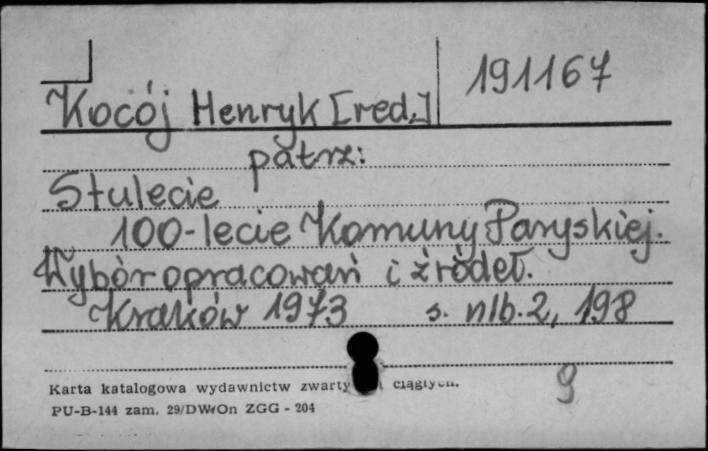 191167
Kocój Henryk [red.]
patrz:
Stulecie
100-lecie Komuny Paryskiej.
Wybór opracowań i źródeł.
Kraków 1973 s. nlb. 2, 198
Karta katalogowa wydawnictw zwarty ciągłych.
9
PU-B-144 zam. 29/DW/On ZGG - 204